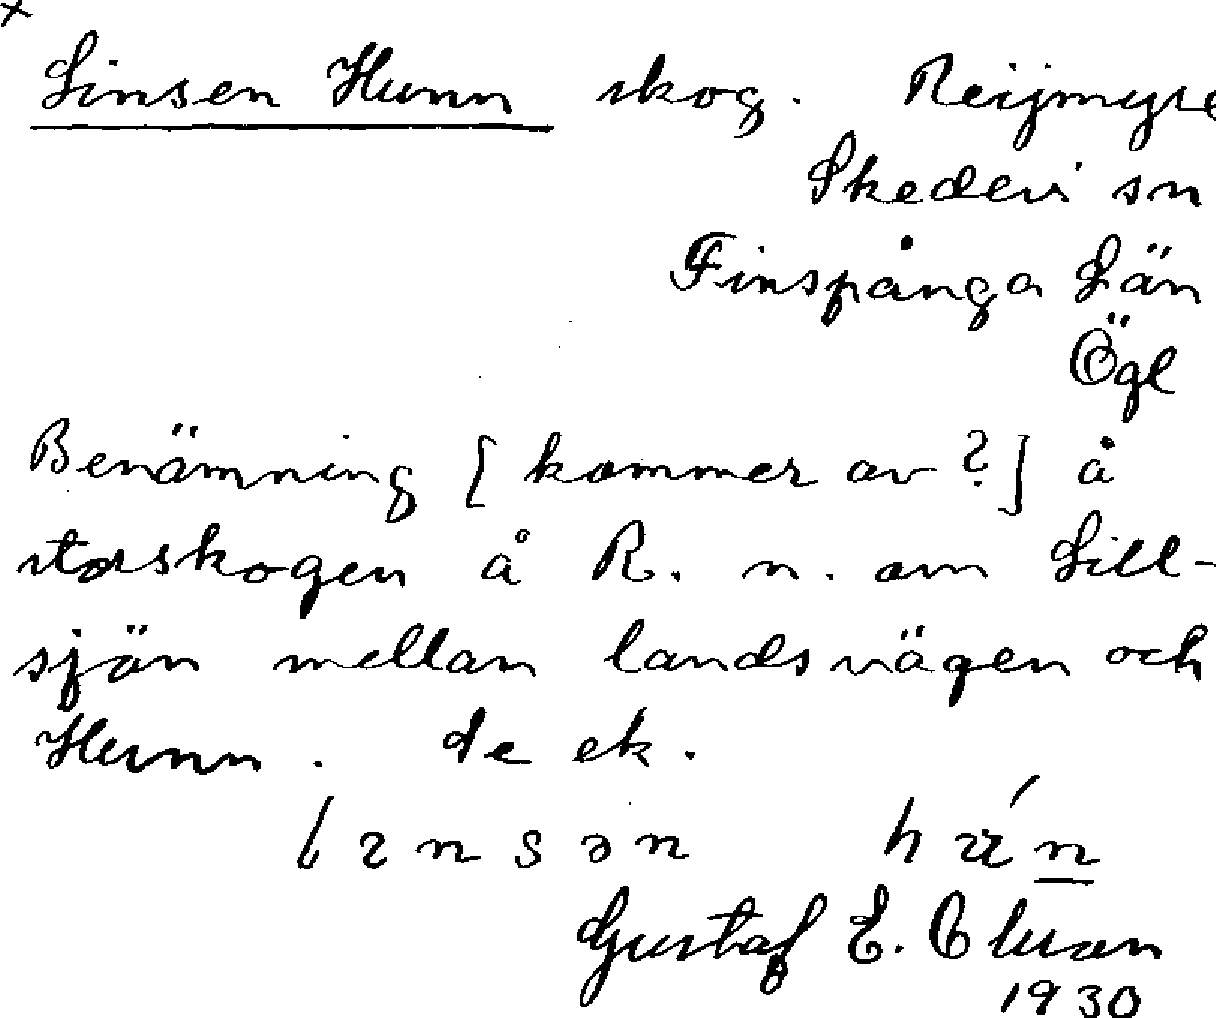 ×
Linsen Hunn skog. Reijmyre
Skedevi sn
Finspånga Län
Ögl
Benämning [kommer av?] å
storskogen å R. n. om Lill-
sjön mellan landsvägen och
Hunn. de ek.
Gustaf E.
1930